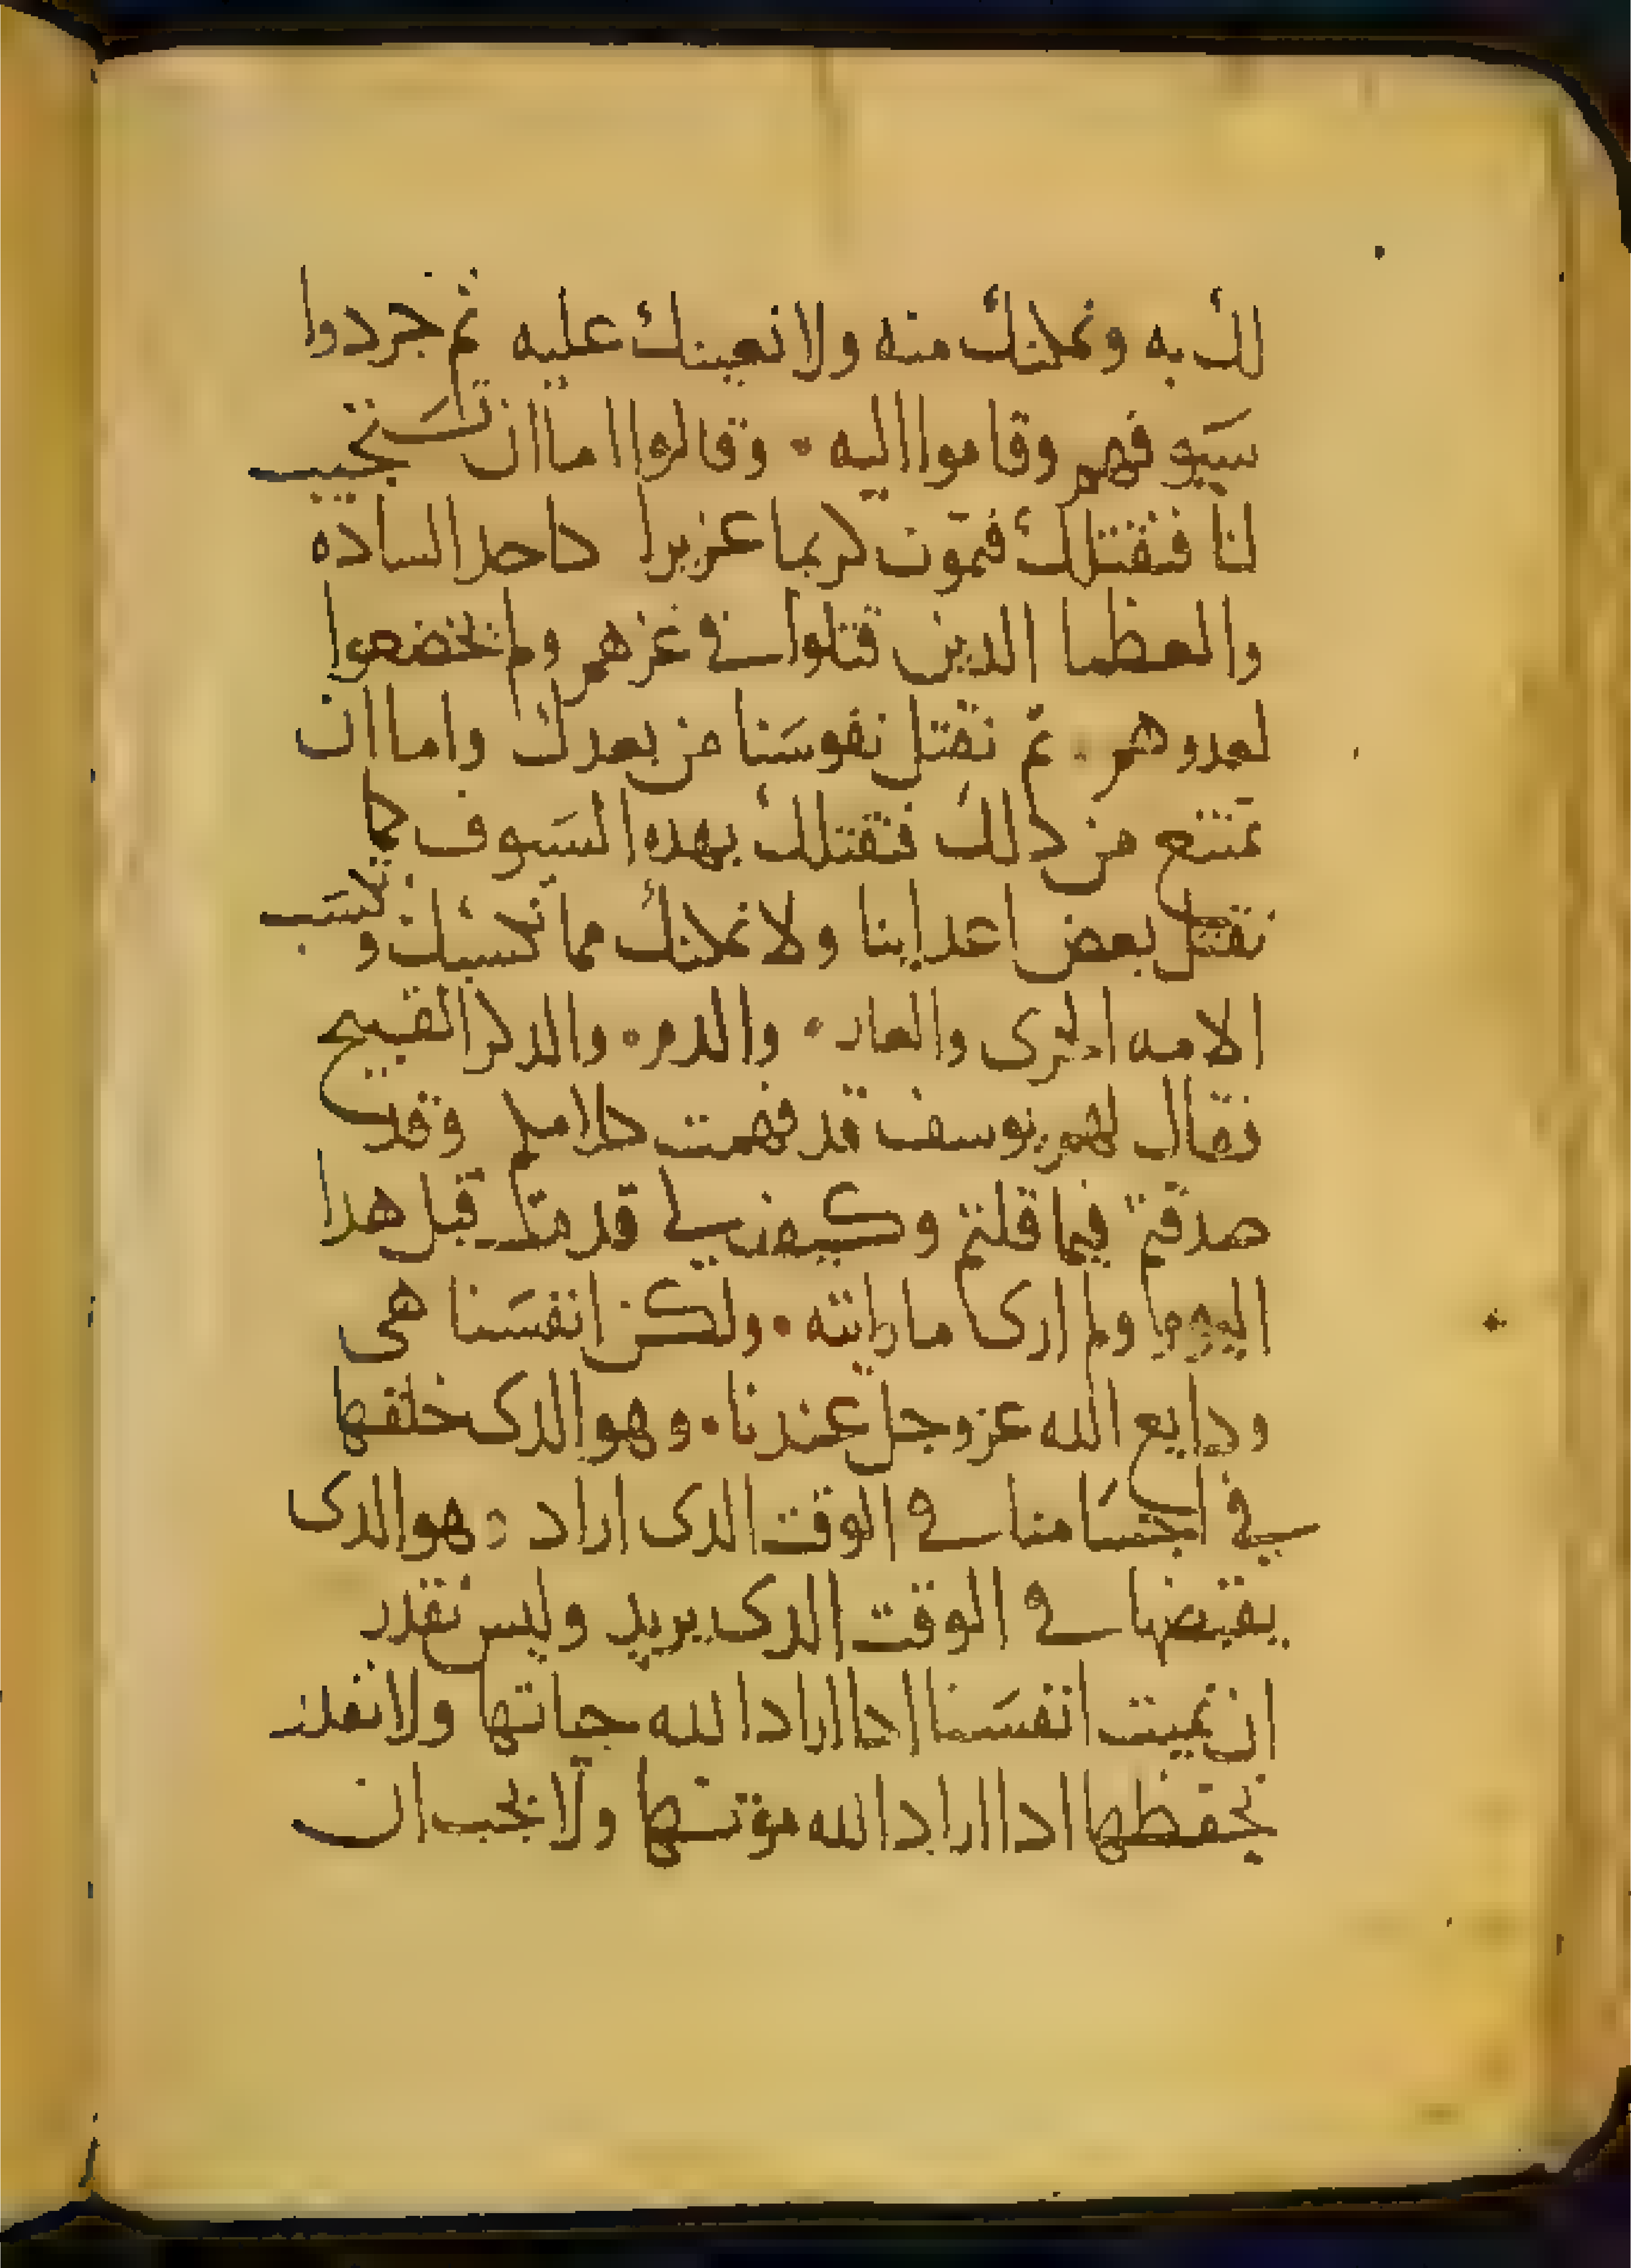 لك به ونمكنك منه ولا نعينك عليه ثم جردوا
سيوفهم وقاموا اليه • وقالوا اما ان تستجيب
لنا فنقتلك فتموت كريما عزيزا كاحد الساده
والعظما الدين قتلوا في عزهم ولم يخضعوا
لعدوهم • ثم نقتل نفوسنا من بعدك واما ان
تمتنع من دلك فنقتلك بهده السيوف كما
نقتل بعض اعداينا ولا نمكنك مما تكسبك وتكسب
الامه الخزى والعار • والدم • والدكر القبيح
فقال لهم يوسف قد فهمت كلامكم وقد
صدقتم فيما قلتم وكيف لي قد مت قبل هدا
اليوم ولم ارى ما رايته • ولكن انفسنا هى
ودايع الله عز وجل عندنا • وهو الدى خلقها
في اجسامنا في الوقت الدى اراد • وهو الدى
يقبضها في الوقت الدى يريد وليس نقدر
ان نميت انفسنا ادا اراد الله حياتها ولا نقدر
نحفظها ادا اراد الله موتها ولا يجب ان